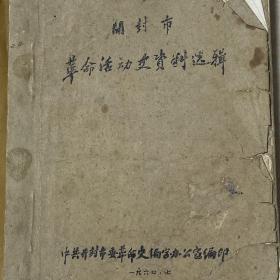 開封市
革命活动史資料选辑
中共开封市委革命史编写办公室编印
一九六〇.七